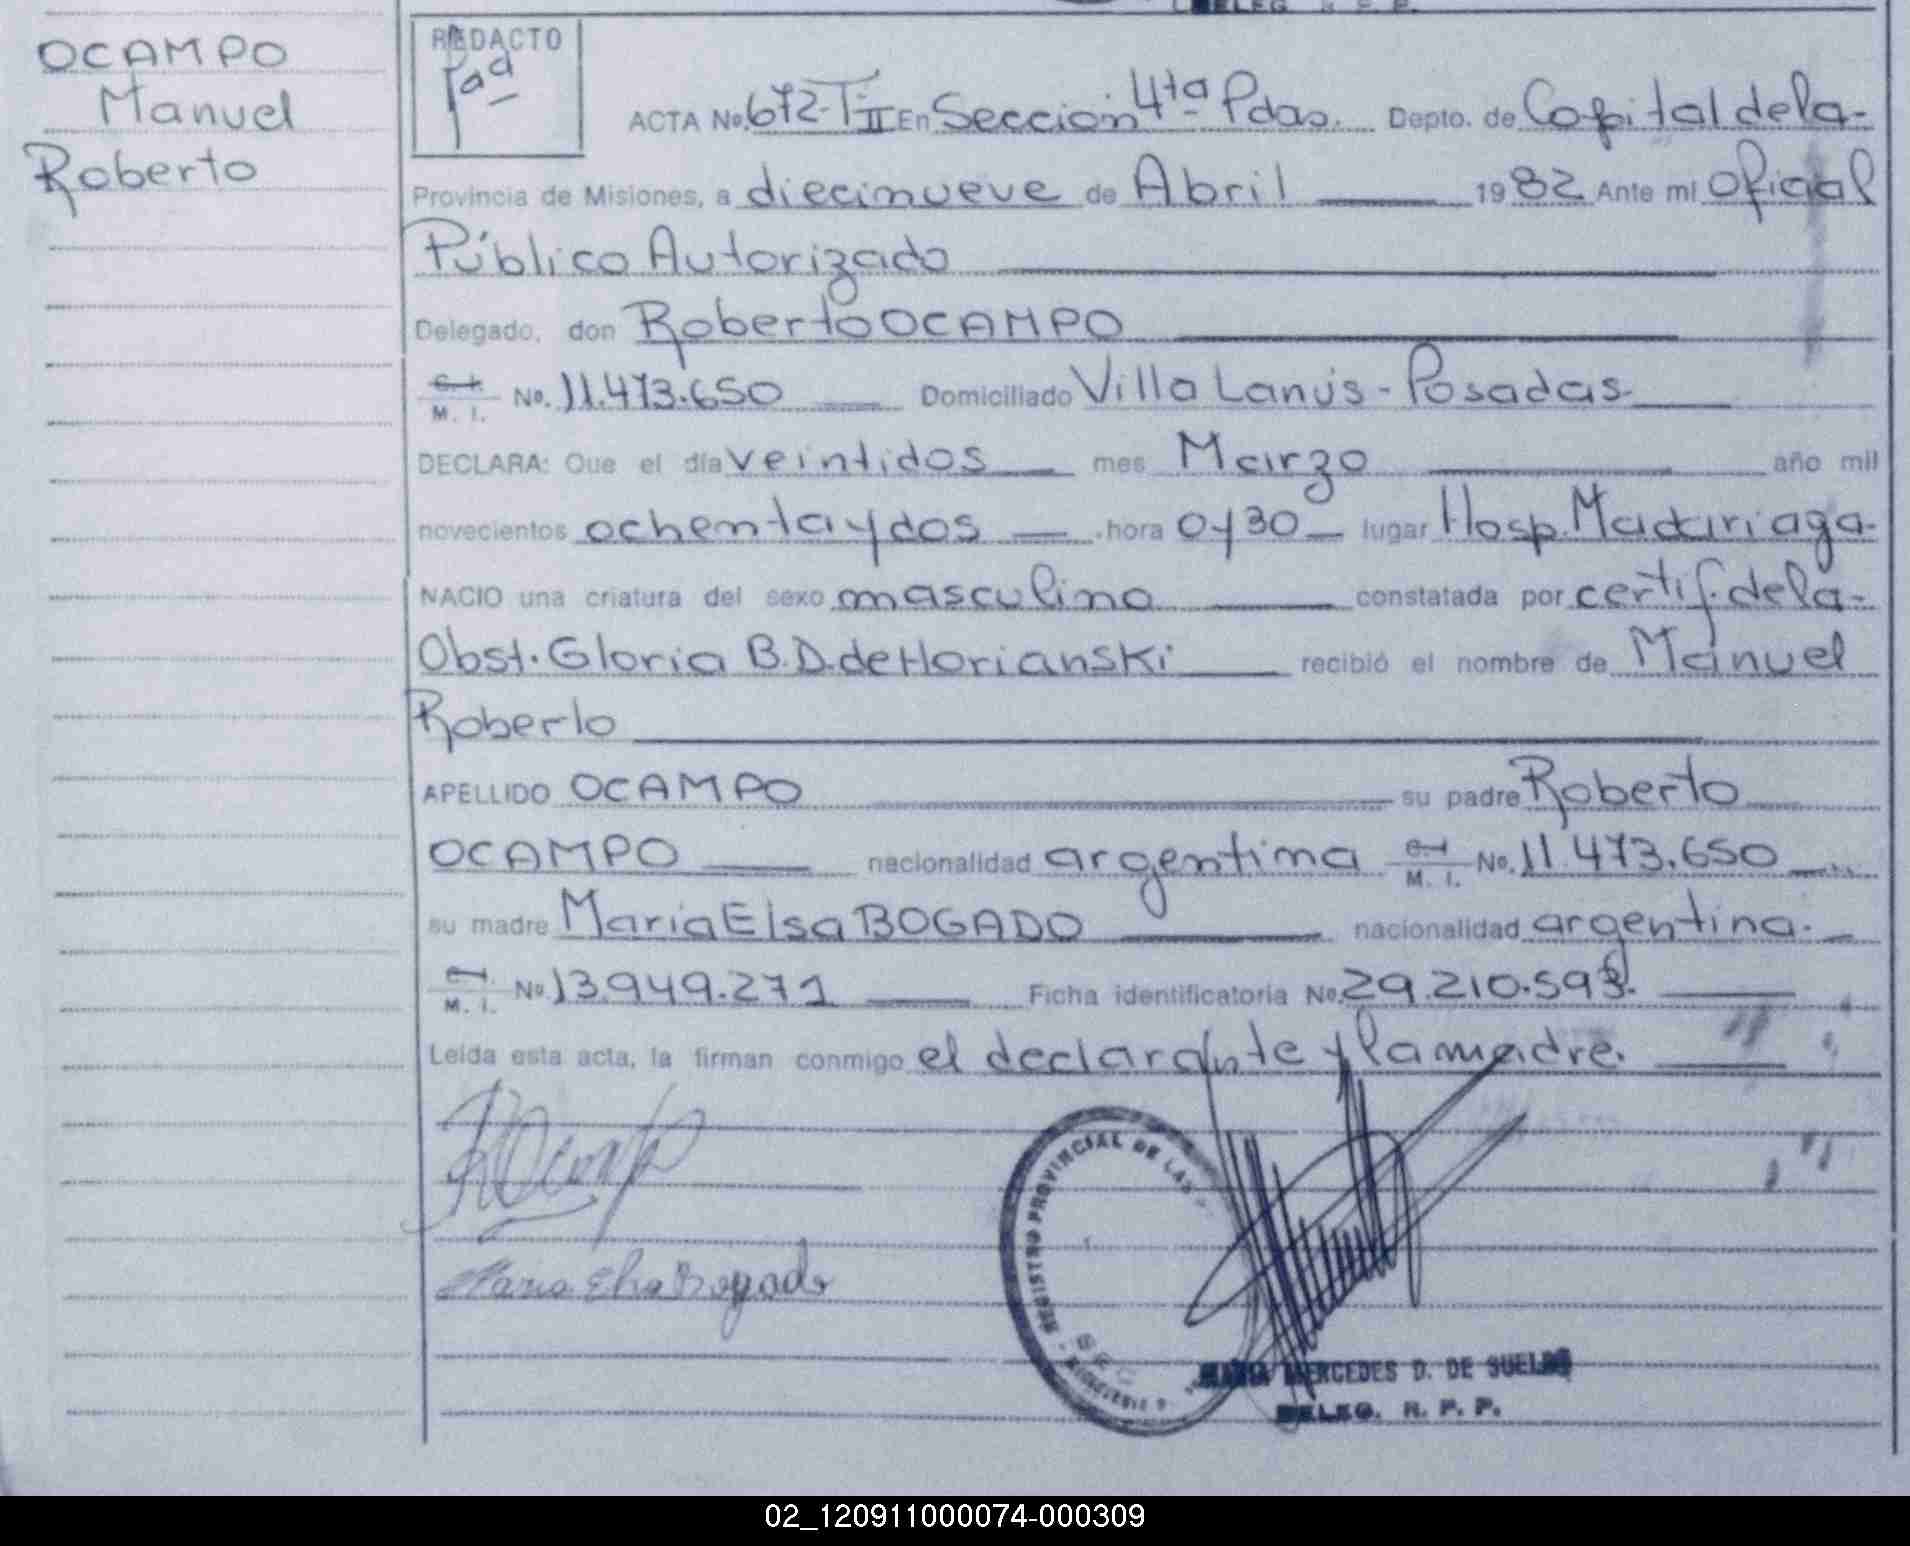 DELEG. R. P. P.
OCAMPO
Manuel
Roberto
REDACTO
ACTA No. 672-T-II En Sección 4ta Pdas. Depto. de Capital de la-
Provincia de Misiones, a diecinueve de Abril 1982 Ante mí Oficial
Público Autorizado
Delegado, don Roberto OCAMPO
C. I. M. I. No. 11.473.650 Domiciliado Villa Lanús - Posadas
DECLARA: Que el día veintidos mes Marzo año mil
novecientos ochenta y dos hora 0y30 lugar Hosp. Madariaga-
NACIO una criatura del sexo masculino constatada por certif. de la-
Obst. Gloria B. D. de Horianski recibió el nombre de Manuel
Roberto
APELLIDO OCAMPO su padre Roberto
OCAMPO nacionalidad argentina C. I. M. I. No. 11.473.650
su madre María Elsa BOGADO nacionalidad argentina.
C. I. M. I. No. 13.949.271 Ficha identificatoria No. 29.210.593.
Leída esta acta, la firman conmigo el declarante y la madre.
ROcampo
Maria Elsa Bogado
REGISTRO PROVINCIAL DE LAS
MARIA MERCEDES D. DE SUELDO
DELEG. R. P. P.
02_120911000074-000309